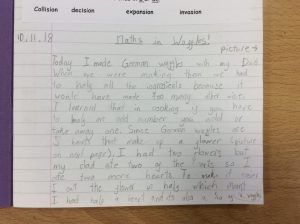 Collision decision expansion invasion
10.11.18 Maths in Waffles!
picture →
Today I made German waffles with my Dad.
When we were making them we had
to halve all the ingredients because it
would have made too many otherwise
I learned that in cooking if you have
to halve an odd number you add or
take away one. Since German waffles are
5 hearts that make up a flower (picture
on next page). I had two flowers but
my dad ate two of the hearts so I
ate two more hearts. To make it
I cut the flower in half which meant
I had half a heart and its also a